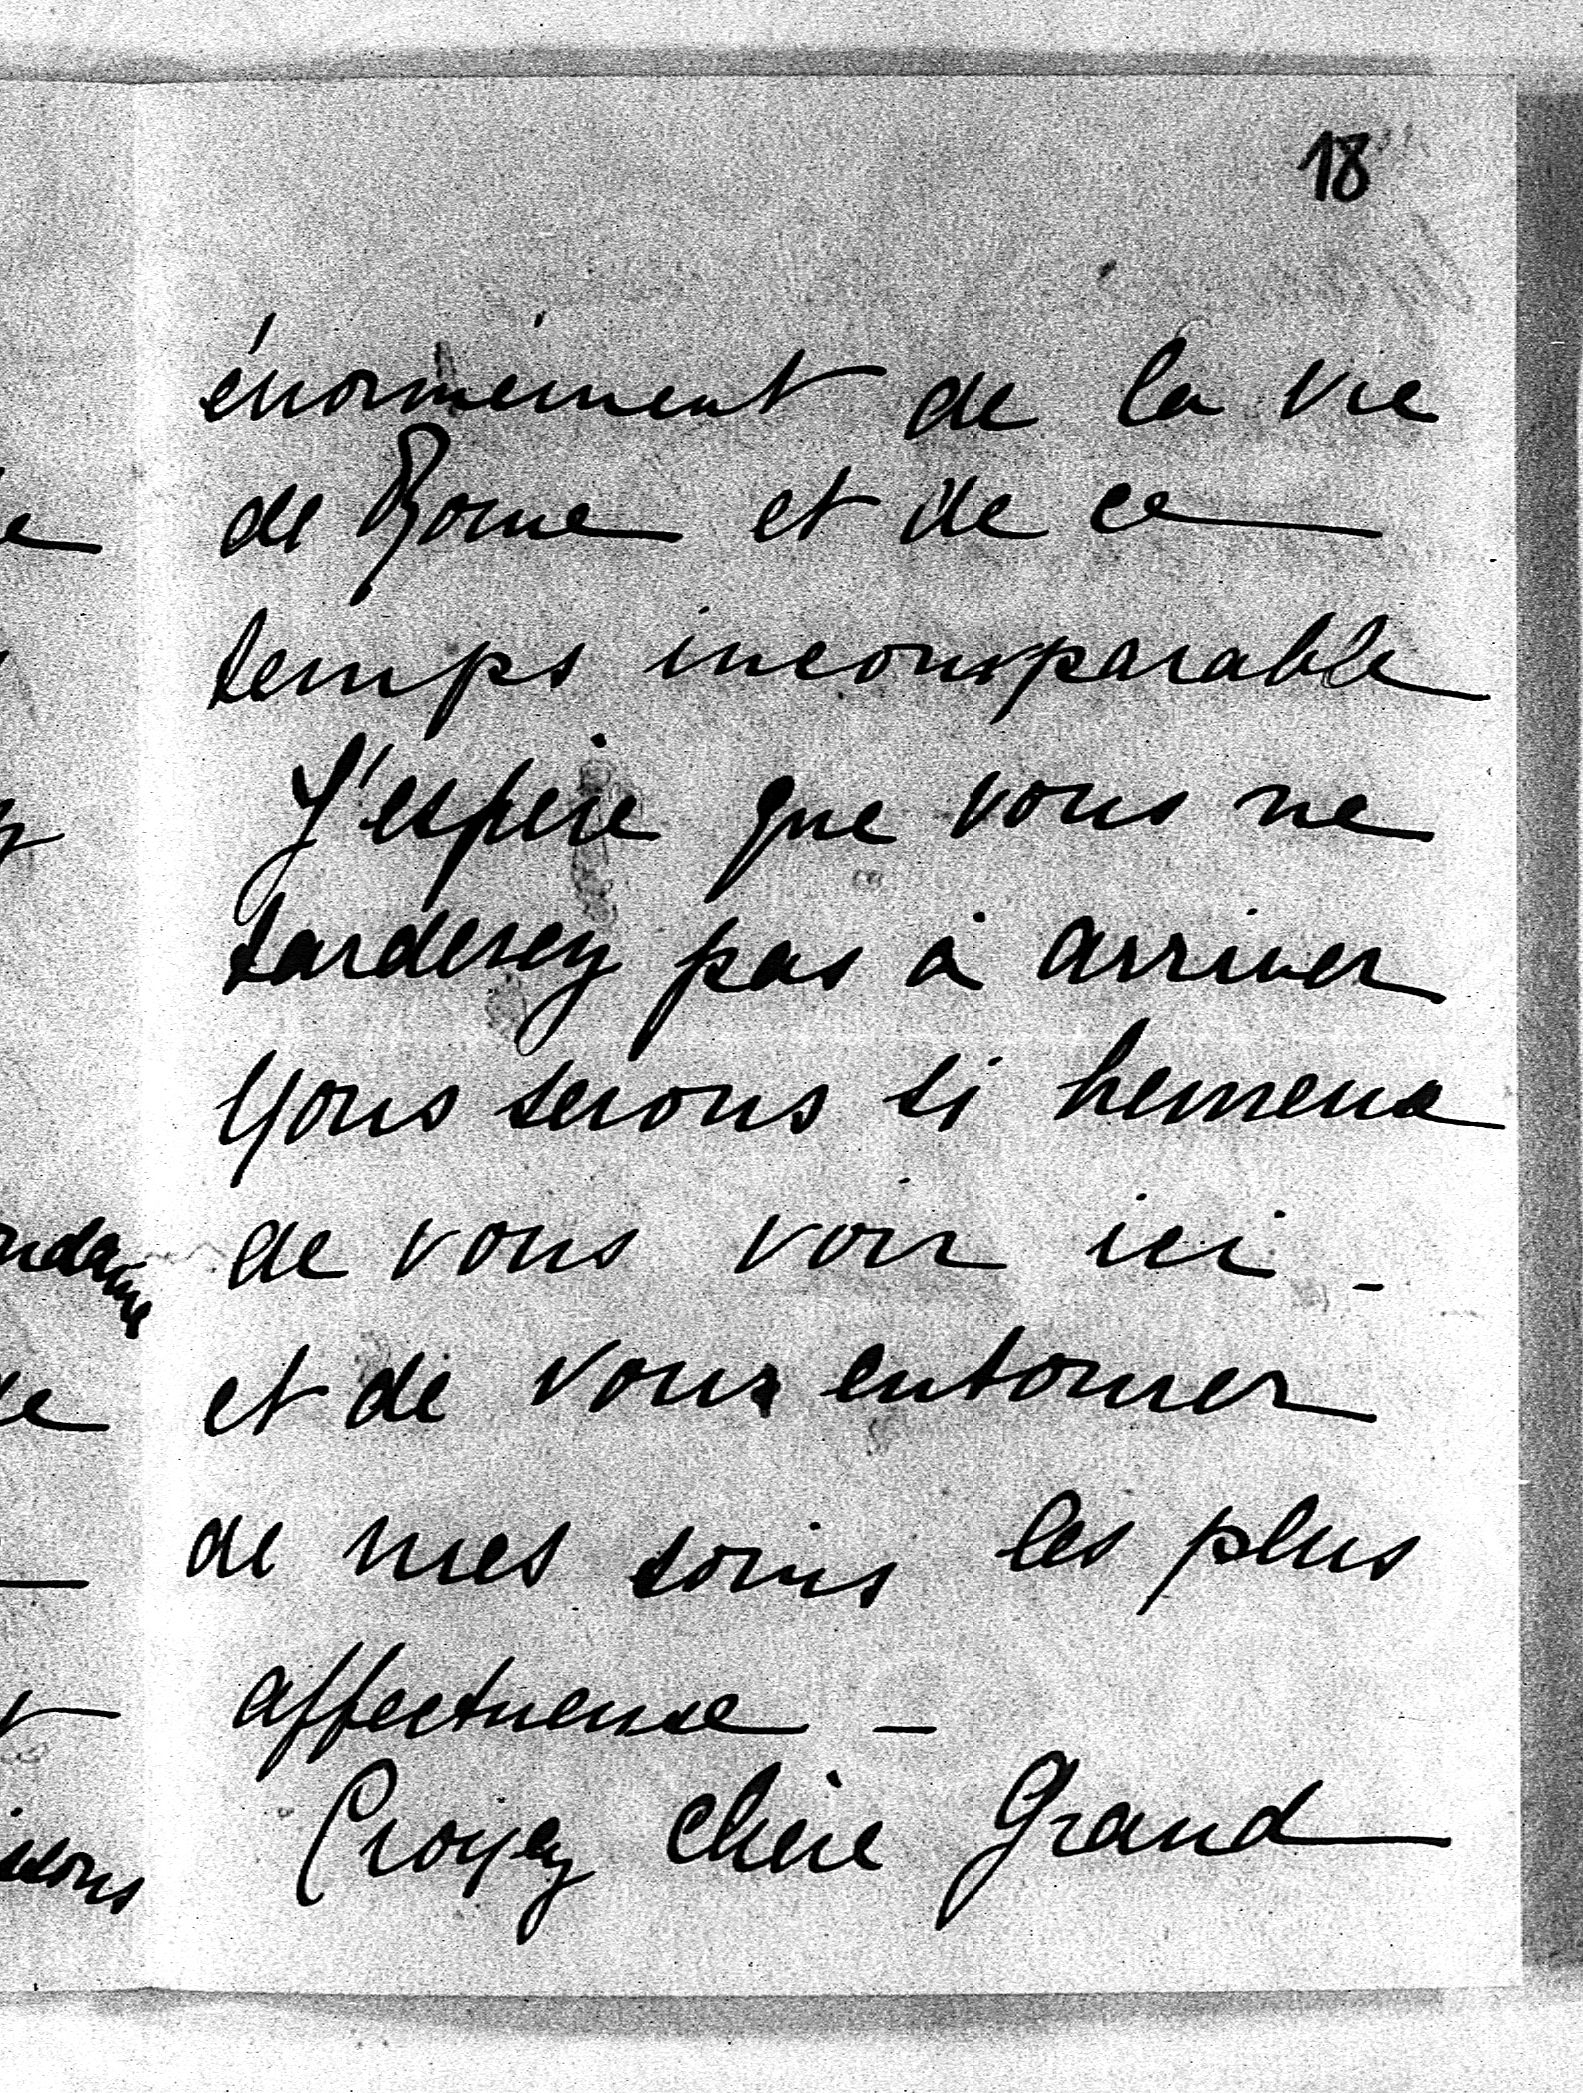 18
énormément de la vie
de Rome et de ce
temps incomparable
J'espère que vous ne
tarderez pas à arriver
Nous serons si heureux
de vous voir ici _
et de vous entourer
de mes soins les plus
affectueuse _
Croyez chère Grand